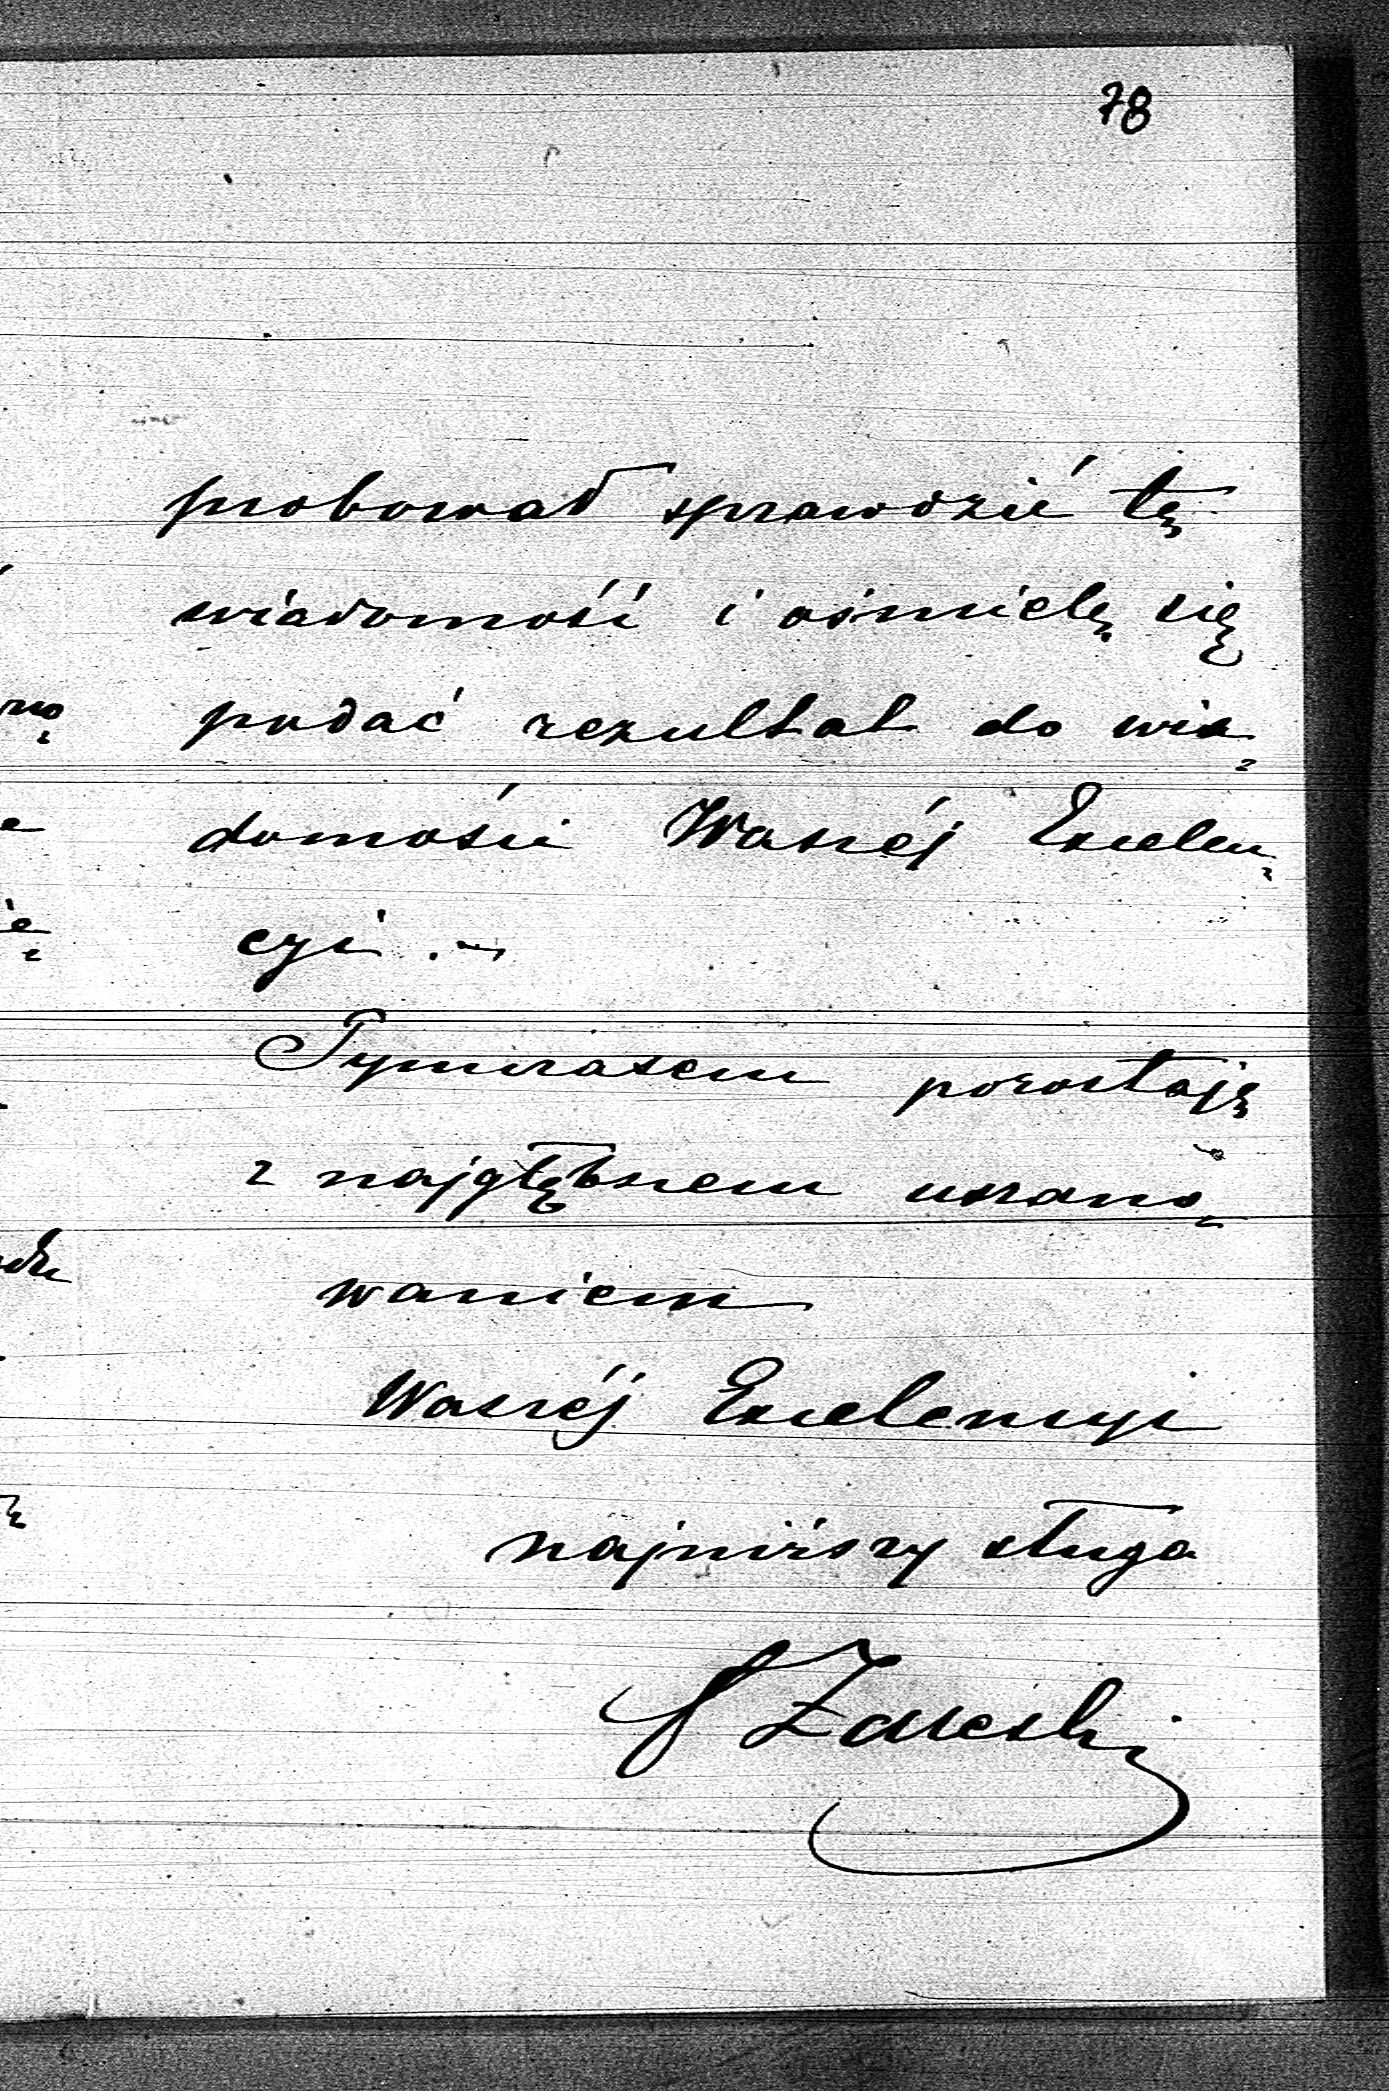 78
probował sprawdzić tę
wiadomość i ośmielę się
podać rezultat do wia-
domości Waszéj Excelen-
cyi. —
Tymczasem pozostaję
z najgłębszem uszano-
waniem
Waszéj Excelencyi
najniższy sługa